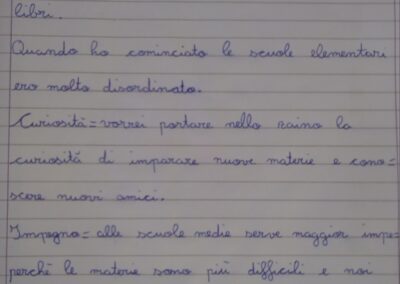 libri.
Quando ho cominciato le scuole elementari
ero molto disordinato.
Curiosità=vorrei portare nello zaino la
curiosità di imparare nuove materie e cono=
scere nuovi amici.
Impegno= alle scuole medie serve maggior impe=
perchè le materie sono più difficili e noi